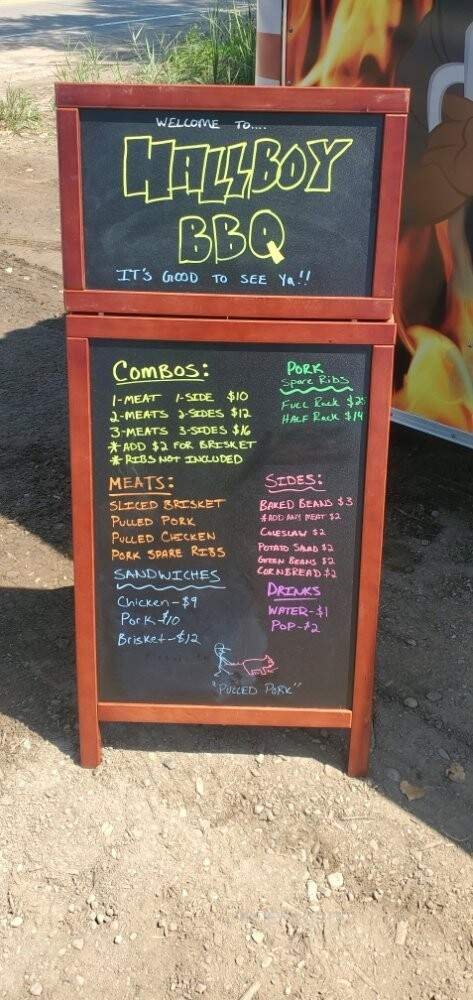 WELCOME TO....
HALLBOY
BBQ
IT'S GOOD TO SEE Ya!!
COMBOS:
1-MEAT 1-SIDE $10
2-MEATS 2-SIDES $12
3-MEATS 3-SIDES $16
* ADD $2 FOR BRISKET
* RIBS NOT INCLUDED
PORK
Spare Ribs
FULL Rack $25
HALF Rack $14
MEATS:
SLICED BRISKET
PULLED PORK
PULLED CHICKEN
PORK SPARE RIBS
SIDES:
BAKED BEANS $3
*ADD ANY MEAT $2
COLESLAW $2
POTATO SALAD $2
GREEN BEANS $2
CORNBREAD $2
SANDWICHES
Chicken-$9
Pork-$10
Brisket-$12
DRINKS
WATER-$1
POP-$2
"PULLED PORK"